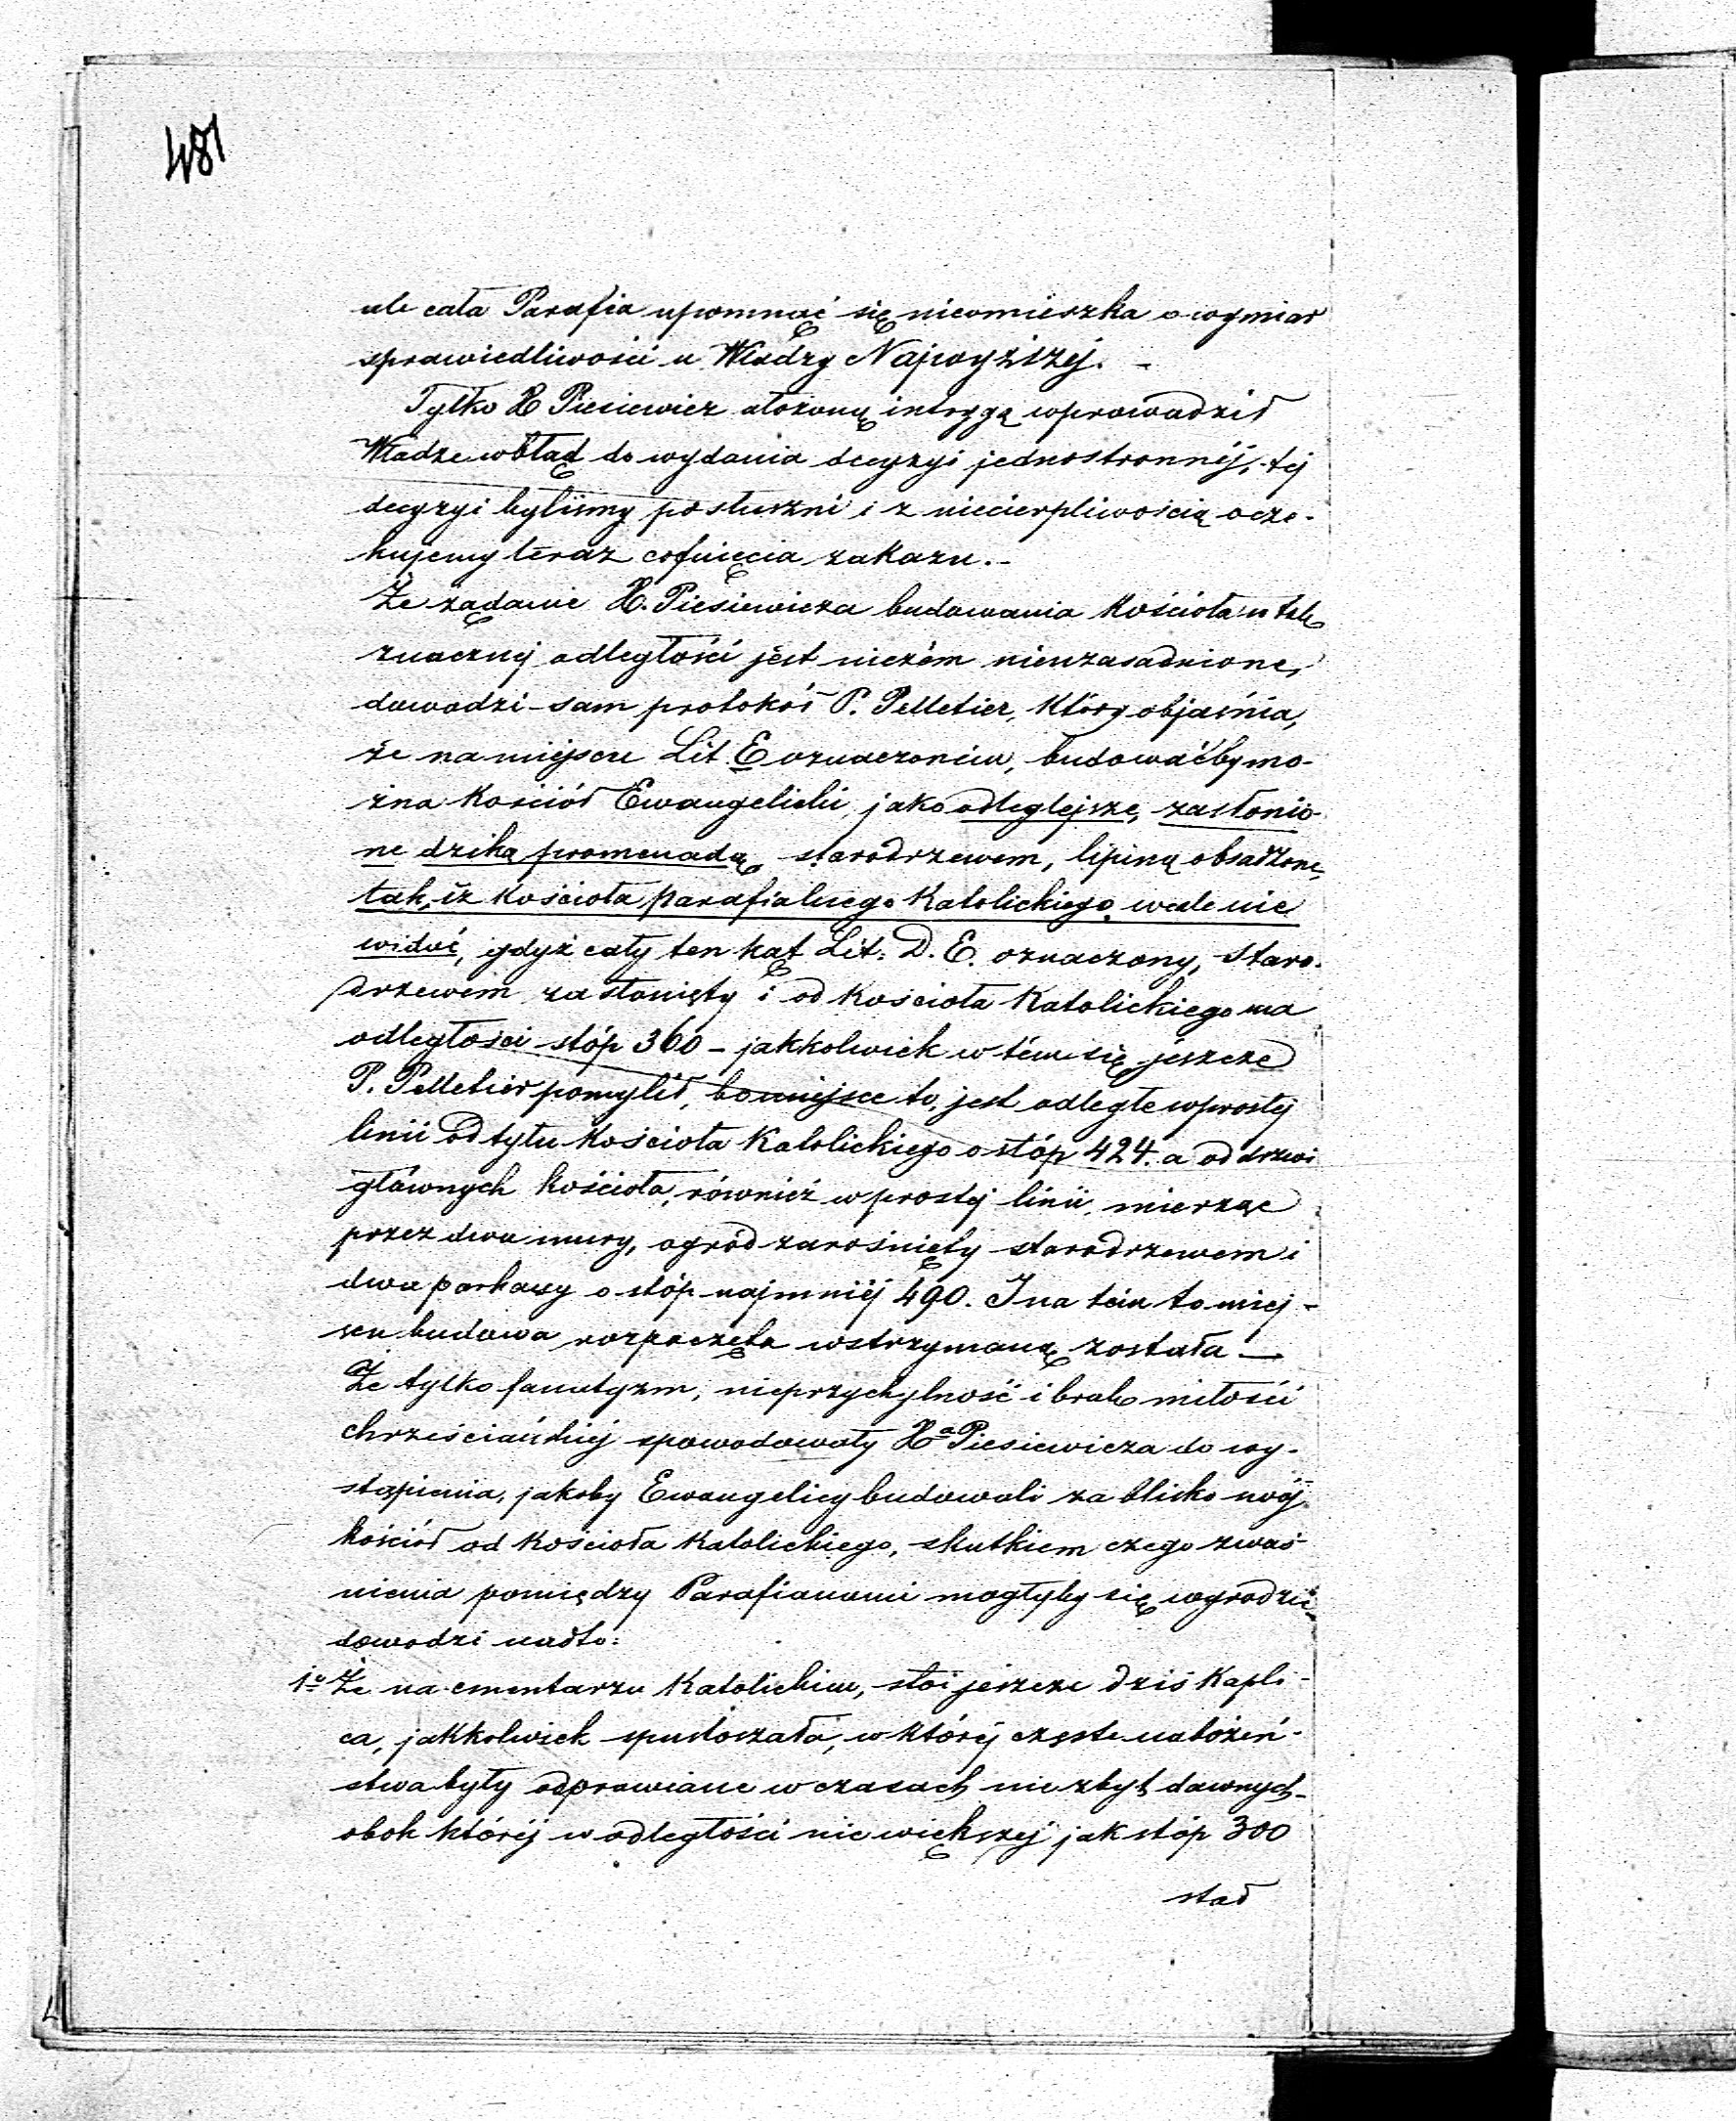 481
ale cała Parafia upomnąć się nieomieszka o wymiar
sprawiedliwości u Władzy Najwyższej. -
Tylko X Piesiewicz ułożoną intrygą wprowadził
Władze wbłąd do wydania decyzyi jednostronnéj, tej
decyzyi byliśmy posłuszni i z niecierpliwością ocze-
kujemy teraz cofnięcia zakazu. -
Że żądanie X. Piesiewicza budowania Kościoła w tak
znacznej odległości jest niczém nieuzasadnione,
dowodzi sam protokół P. Pelletier, który objaśnia,
że na miejscu Lit E oznaczoném, budowaćby mo-
żna Kościół Ewangelicki, jako odleglejsze, zasłonio-
ne dziką promenadą starodrzewem, lipiną obsadzone,
tak, iż Kościoła parafialnego Katolickiego wcale nie
widać, gdyż cały ten kąt Lit: D. E. oznaczony, staro-
drzewem zasłonięty i od Kościoła Katolickiego ma
odległości stóp 360 - jakkolwiek w tém się jeszcze
P. Pelletier pomylił, bo miejsce to, jest odległe wprostéj
linii od tyłu Kościoła Katolickiego o stóp 424. a od drzwi
głównych kościoła, również w prostéj linii, mierząc
przez dwa mury, ogród zarośnięty starodrzewem i
dwa parkany o stóp najmniéj 490. I na tém to miej-
scu budowa rozpoczęta wstrzymaną została —
Że tylko fanatyzm, nieprzychylność i brak miłości
chrześciańskiéj spowodowały Xa Piesiewicza do wy-
stąpienia, jakoby Ewangelicy budowali za blisko swój
kościół od Kościoła Katolickiego, skutkiem czego zwaś-
nienia pomiędzy Parafianami mogłyby się wyrodzić
dowodzi nadto:
1o Że na cmentarzu Katolickim, stoi jeszcze dziś Kapli-
ca, jakkolwiek spustoszała, w któréj częste nabożeń-
stwa były odprawiane w czasach nie zbyt dawnych -
obok któréj w odległości nie większéj jak stóp 300
stał